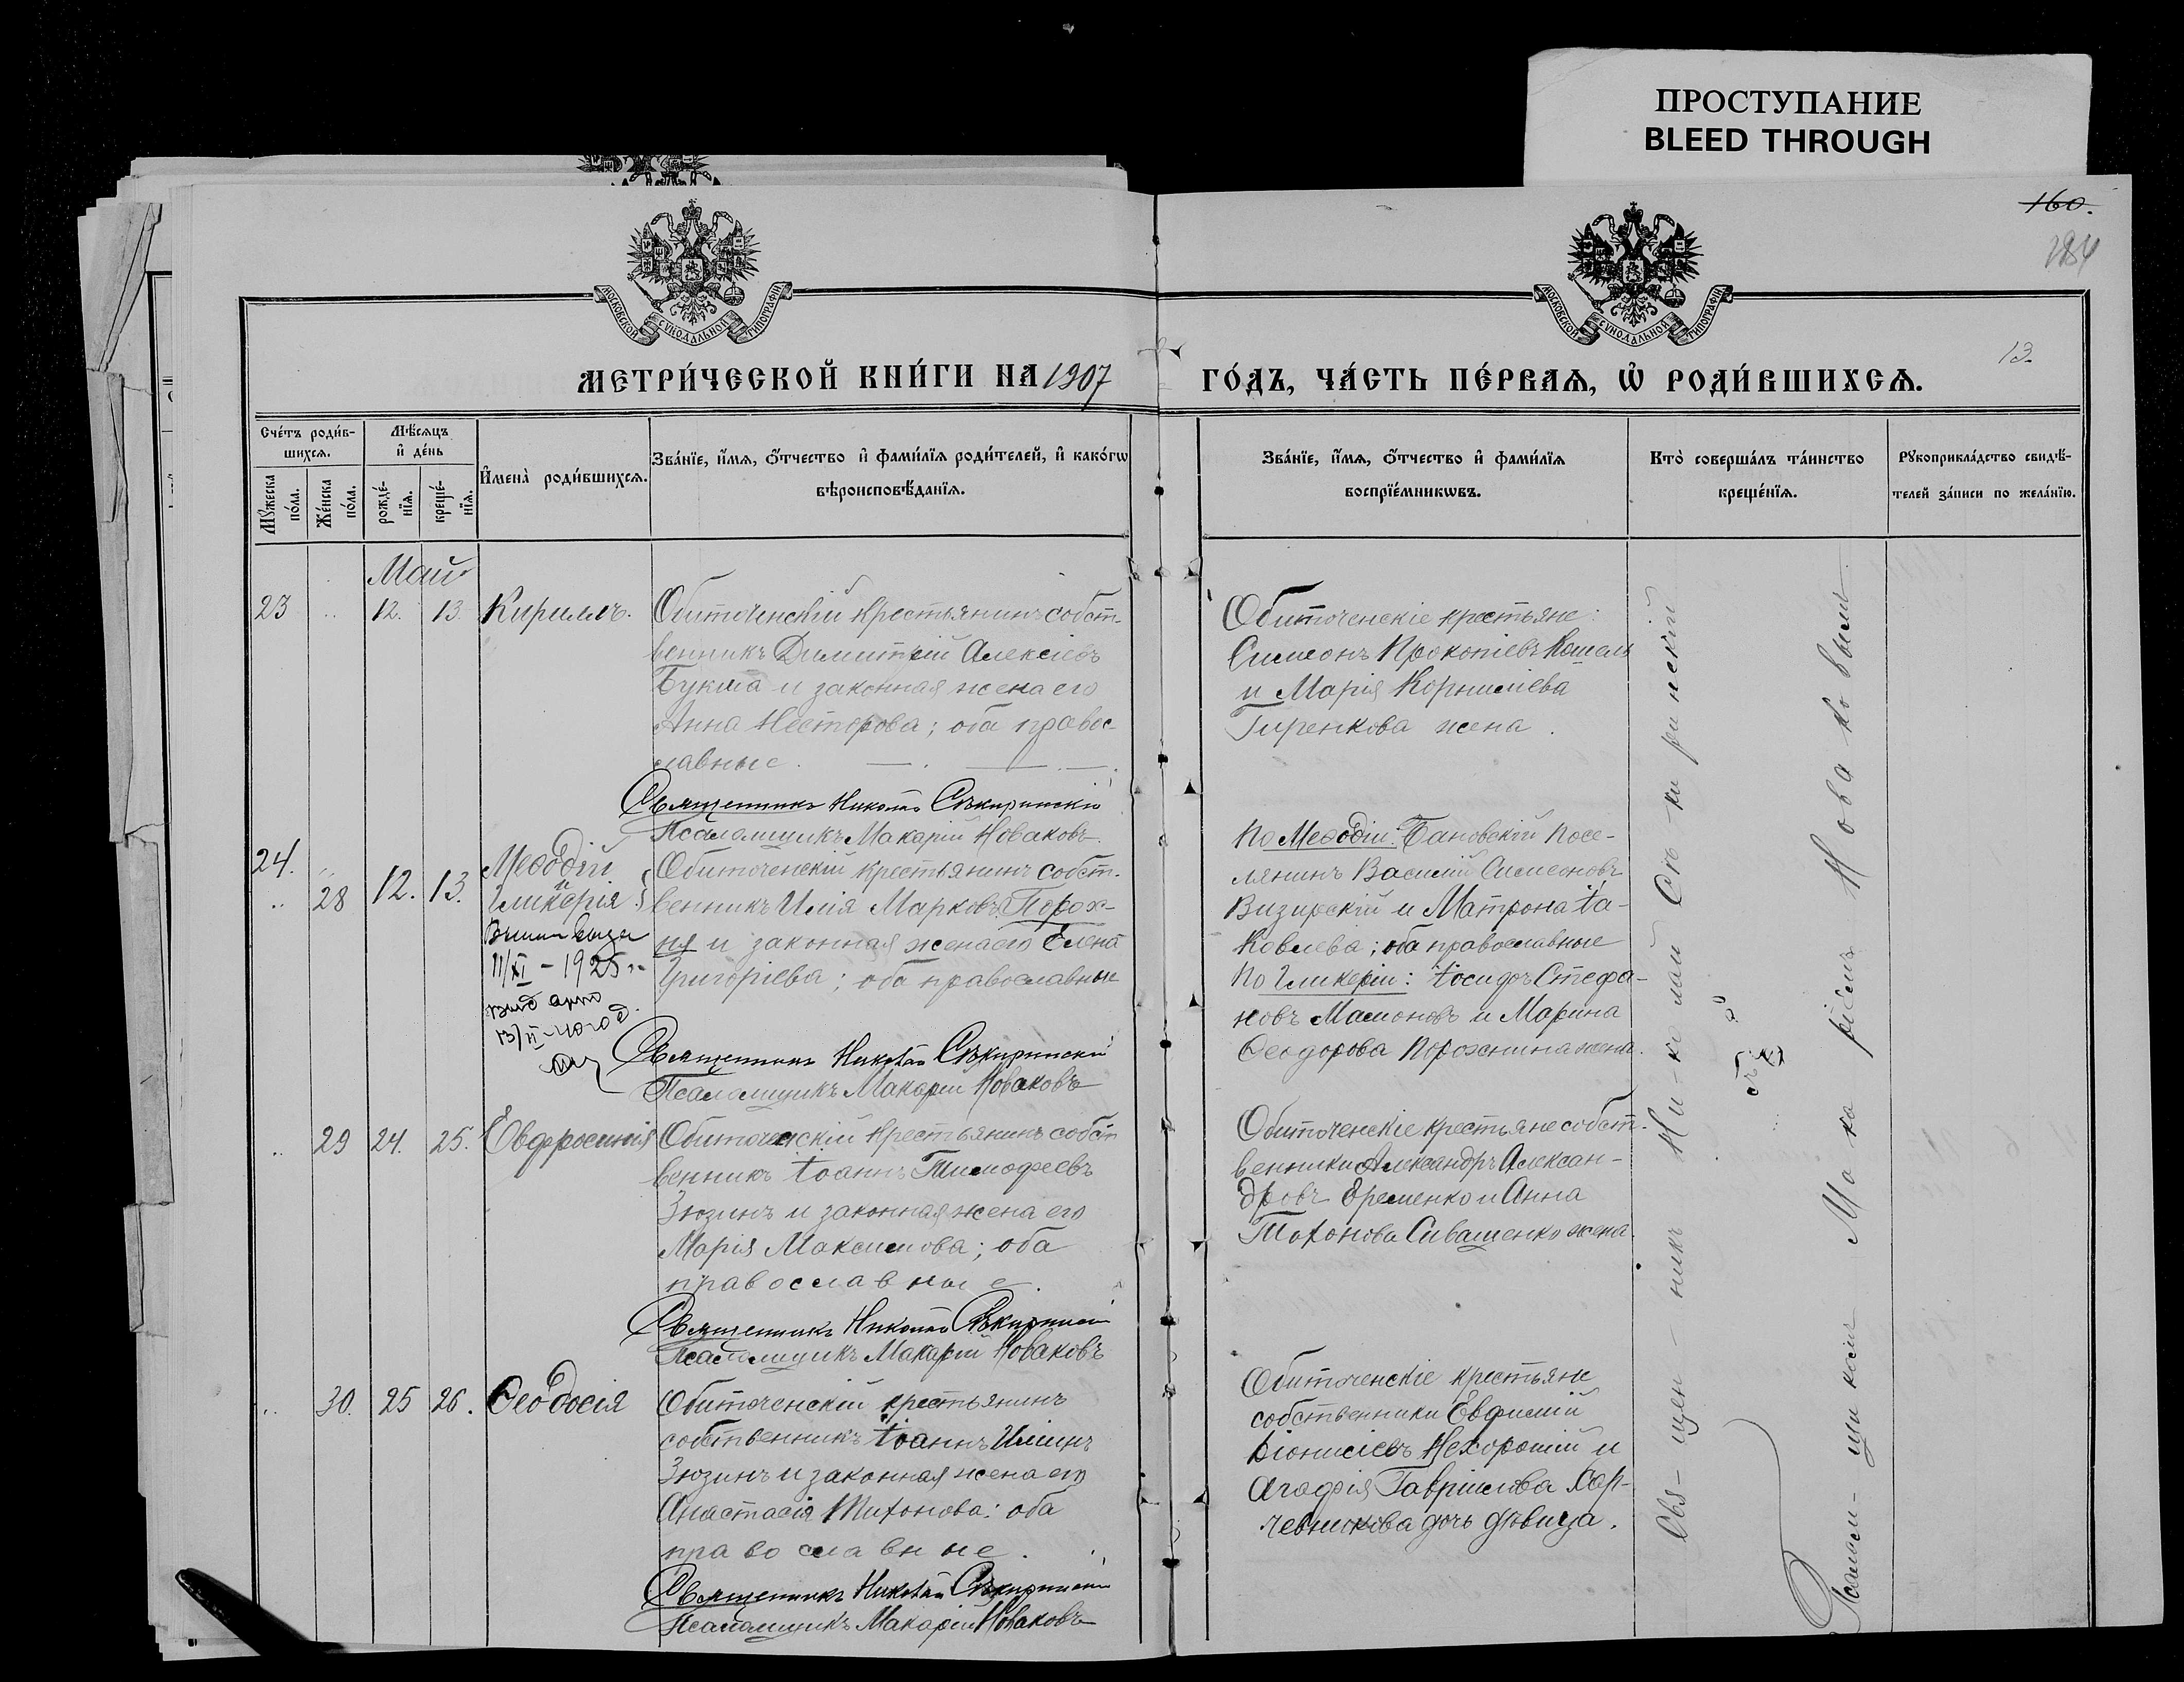 ПРОСТУПАНИЕ
BLEED THROUGH
160.
МОСКОВСКОЙ СѴНОДАЛЬНОЙ ТИПОГРАФІИ
МОСКОВСКОЙ СѴНОДАЛЬНОЙ ТИПОГРАФІИ
13.
МЕТРИ́ЧЕСКОЙ КНИ́ГИ НА 1907
ГО́ДЪ, ЧА́СТЬ ПЕ́РВАЯ, Ѡ҆ РОДИ́ВШИХСЯ.
Сче́тъ роди́в-
шихся.
Мѣ́сяцъ
и҆ де́нь
Мꙋ́жеска по́ла.
Же́нска по́ла.
рожде́-
нїя.
креще́-
нїя.
И҆мена̀ роди́вшихся.
Зва́нїе, и҆́мя, ѻ҆́тчество и҆ фами́лїя роди́телей, и҆ како́гѡ
вѣроисповѣ́данїя.
Зва́нїе, и҆́мя, ѻ҆́тчество и҆ фами́лїя
воспрїе́мникѡвъ.
Кто̀ соверша́лъ та́инство
креще́нїя.
Рꙋкоприкла́дство свидѣ́-
телей за́писи по жела́нїю.
Май
23 .. 12. 13. Кириллъ.
Обиточенскій крестьянинъ собст-
венникъ Димитрій Алексіевъ
Букша и законная жена его
Анна Несторова; оба правос-
лавные.
Священникъ Николай Сѣкиринскій
Псаломщикъ Макарій Новаковъ.
Обиточенскіе крестьяне:
Симеонъ Прокопіевъ Кошель
и Марія Корнилиева
Гиренкова жена.
24. ..
.. 28 12. 13.
Меѳодій
и
Гликерія
11/XI - 1925 г.
Обиточенскій крестьянинъ собст-
венникъ Илія Марковъ Порох-
ня и законная жена его Елена
Григоріева; оба православные
Священникъ Николай Сѣкиринскій
Псаломщикъ Макарій Новаковъ
По Меѳодіи: Бановскій посе-
лянинъ Василій Симеоновъ
Визирскій и Матрона Іа-
ковлева; оба православные
По Гликеріи: Іосифъ Стефа-
новъ Мамоновъ и Марина
Ѳеодорова Порохнина жена.
.. 29 24. 25. Евфросинія
Обиточенскій крестьянинъ собст
венникъ Іоаннъ Тимофеевъ
Зюзинъ и законная жена его
Марія Максимова; оба
православные.
Священникъ Николай Сѣкиринскій
Псаломщикъ Макарій Новаковъ
Обиточенскіе крестьяне собст-
венники Александръ Алексан-
дровъ Еременко и Анна
Тихонова Сивашенко жена.
.. 30. 25 26. Ѳеодосія
Обиточенскій крестьянинъ
собственникъ Іоаннъ Илиинъ
Зюзинъ и законная жена его
Анастасія Тихонова: оба
православные.
Священникъ Николай Сѣкиринскій
Псаломщикъ Макарій Новаковъ
Обиточенскіе крестьяне
собственники Евфимій
Діонисіевъ Нехорошій и
Агафія Гавріилова Хар-
ченкова дочь дѣвица.
Свя-щен-никъ Ни-ко-лай Сѣ-ки-ринскій
съ
Псалом-щи-комъ Ма-ка-ріемъ Новаковымъ